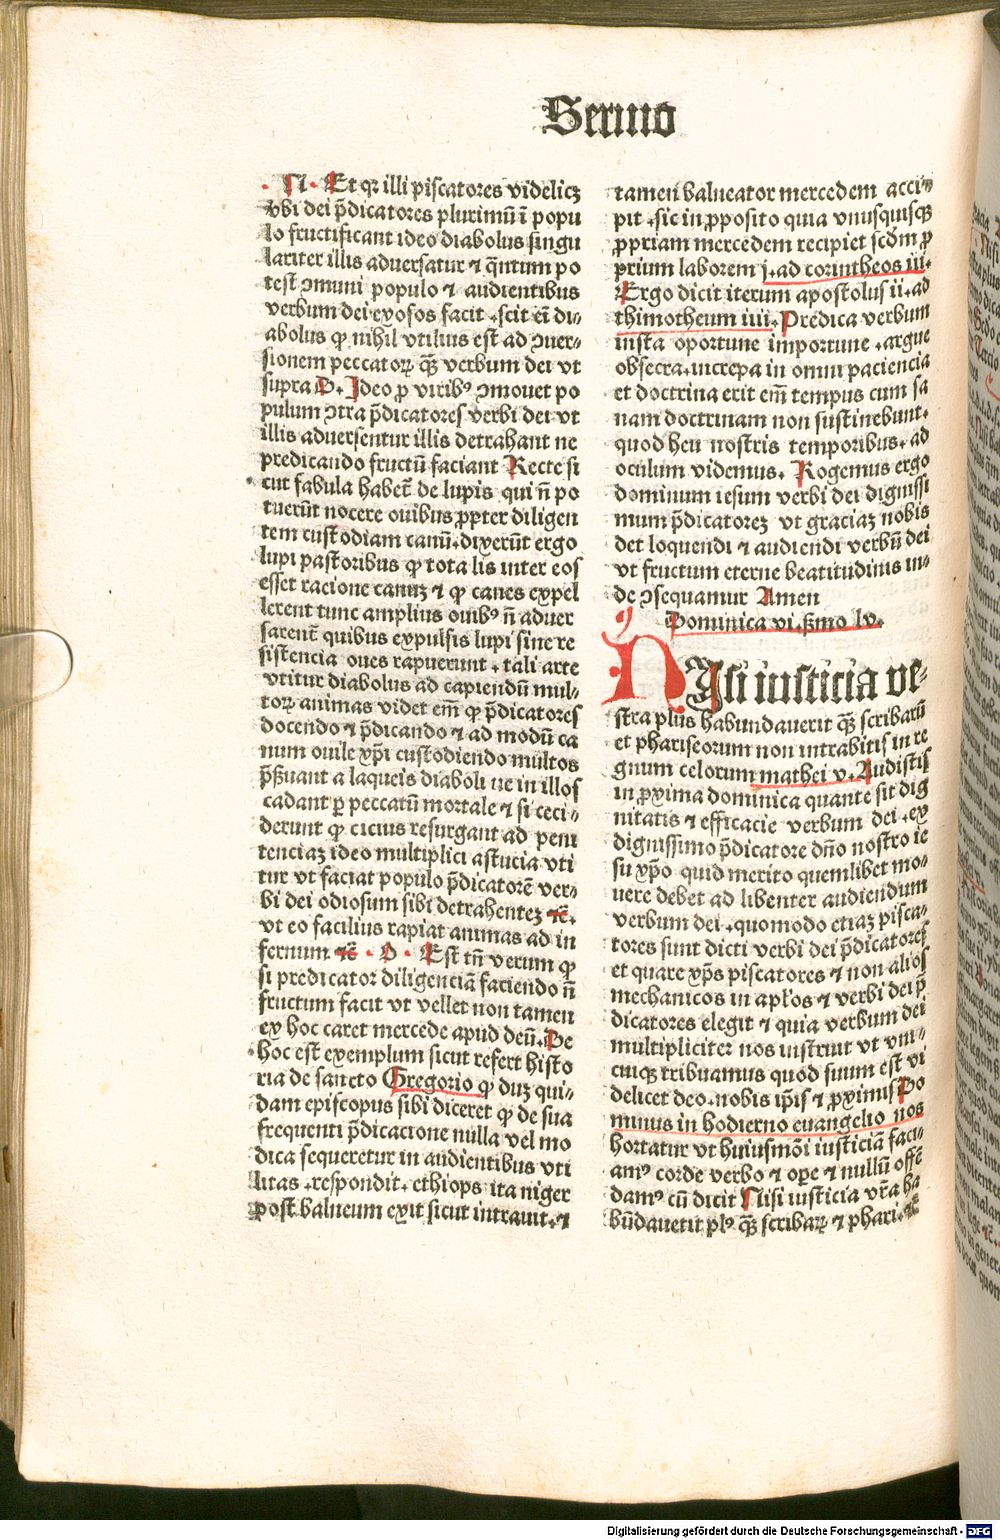 Sermo
·N· Et qꝛ illi piſcatores videlicꝫ
vbi dei p̄dicatores plurimū ī popu
lo fructificant ideo diabolus ſingu
lariter illis aduerſatur ⁊ q̄ntum po
teſt ↄmuni populo ⁊ audientibus
verbum dei exoſos facit .ſcit eī di⸗
abolus ꝙ nihil vtilius eſt ad ↄuer⸗
ſionem peccatorꝝ qꝫ̄ verbum dei vt
ſupra D. Ideo ꝓ viribꝰ ↄmouet po
pulum ↄtra p̄dicatores verbi dei vt
illis aduerſentur illis detrahant ne
predicando fructū faciant Recte ſi
cut fabula habet̄ de lupis qui n̄ po
tuerūt nocere ouibus ꝓpter diligen
tem cuſtodiam canū.dixerūt ergo
lupi paſtoribus ꝙ tota lis inter eos
eſſet racione canuꝫ ⁊ ꝙ canes expel
lerent tunc amplius ouibꝰ n̄ aduer
ſarent̄ quibus expulſis lupi ſine re
ſiſtencia oues rapuerunt . tali arte
vtitur diabolus ad capiendū mul⸗
torꝝ animas videt em̄ ꝙ p̄dicatores
docendo ⁊ p̄dicando ⁊ ad modū ca
num ouile xp̄i cuſtodiendo multos
p̄ſuant a laqueis diaboli ne in illos
cadant ꝑ peccatū mortale ⁊ ſi ceci⸗
derunt ꝙ cicius reſurgant ad peni
tenciaꝫ ideo multiplici aſtucia vti
tur vt faciat populo p̄dicatorē ver⸗
bi dei odioſum ſibi detrahenteꝫ ⁊c̄.
vt eo facilius rapiat animas ad in
fernum ⁊c̄ · O · Eſt tn̄ verum ꝙ
ſi predicator diligenciā faciendo n̄
fructum facit vt vellet non tamen
ex hoc caret mercede apud deū. De
hoc eſt exemplum ſicut refert hiſto
ria de ſancto Gregorio ꝙ duꝫ qui⸗
dam epiſcopus ſibi diceret ꝙ de ſua
frequenti p̄dicacione nulla vel mo
dica ſequeretur in audientibus vti
litas .reſpondit. ethiops ita niger
poſt balneum exit ſicut intrauit.⁊
tamen balneator mercedem acci⸗
pit .ſic in ꝓpoſito quia vnuſquiſqꝫ
ꝓpriam mercedem recipiet ſcd̄m ꝓ
prium laborem j.ad corintheos iii.
Ergo dicit iterum apoſtolus ii.ad
thimotheum iiii. Predica verbum
inſta oportune importune .argue
obſecra.increpa in omni paciencia
et doctrina erit em̄ tempus cum ſa
nam doctrinam non ſuſtinebunt.
quod heu noſtris temporibus. ad
oculum videmus. Rogemus ergo
dominum ieſum verbi dei digniſſi
mum p̄dicatoreꝫ vt graciaꝫ nobis
det loquendi ⁊ audiendi verbū dei
vt fructum eterne beatitudinis in⸗
de ↄſequamur Amen
Dominica vi.ẜmo lv.
NIſi iuſticia ve⸗
ſtra plus habundauerit qꝫ̄ ſcribarū
et phariſeorum non intrabitis in re
gnum celorum mathei v. Audiſtis
in ꝓxima dominica quante ſit dig
nitatis ⁊ efficacie verbum dei .ex
digniſſimo p̄dicatore dn̄o noſtro ie
ſu xp̄o quid merito quemlibet mo⸗
uere debet ad libenter audiendum
verbum dei .quomodo etiaꝫ piſca⸗
tores ſunt dicti verbi dei p̄dicatores
et quare xp̄s piſcatores ⁊ non alios
mechanicos in apl̄os ⁊ verbi dei p̄
dicatores elegit ⁊ quia verbum dei
multipliciter nos inſtruit vt vni⸗
cuiqꝫ tribuamus quod ſuum eſt vi
delicet deo.nobis ip̄is ⁊ ꝓximis Do
minus in hodierno euangelio nos
hortatur vt huiuſmōi iuſticiā faci⸗
amꝰ corde verbo ⁊ oꝑe ⁊ nullū offē
damꝰ cū dicit Niſi iuſticia vr̄a ha
būdauerit plꝰ qꝫ̄ ſcribarꝝ ⁊ phari.⁊c̄
Digitalisierung gefördert durch die Deutsche Forschungsgemeinschaft - DFG